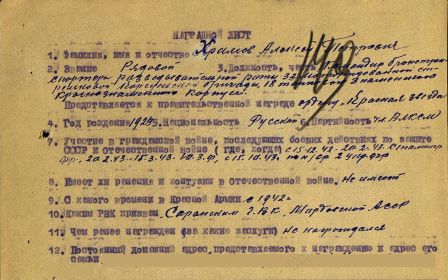 НАГРАДНОЙ ЛИСТ
1. Фамилия, имя и отчество Храмов Алексей Петрович
2. Звание Рядовой 3. Должность, часть Командир бронетран-
спортера разведывательной роты 32 мотострелковой
Краснознаменного Корпуса.
Представляется к правительственной награде ордену "Красная звезда"
4. Год рождения 1925г. Национальность Русский 6. Партийность чл. ВЛКСМ
7. Участие в гражданской войне, последующих боевых действиях по защите
СССР и отечественной войне (где, когда) с 15.12.42 - 20.2.43
фр., 20.2.43 - 15.3.43 с 15.10.43
8. Имеет ли ранения и контузии в отечественной войне. не имеет
9. С какого времени в Красной Армии с 1942г.
10. Каким РВК призван Саранским ГВК, Мордовской АССР
11. Чем ранее награжден (за какие заслуги) не награждался
12. Постоянный домашний адрес представляемого к награждению и адрес его
семьи